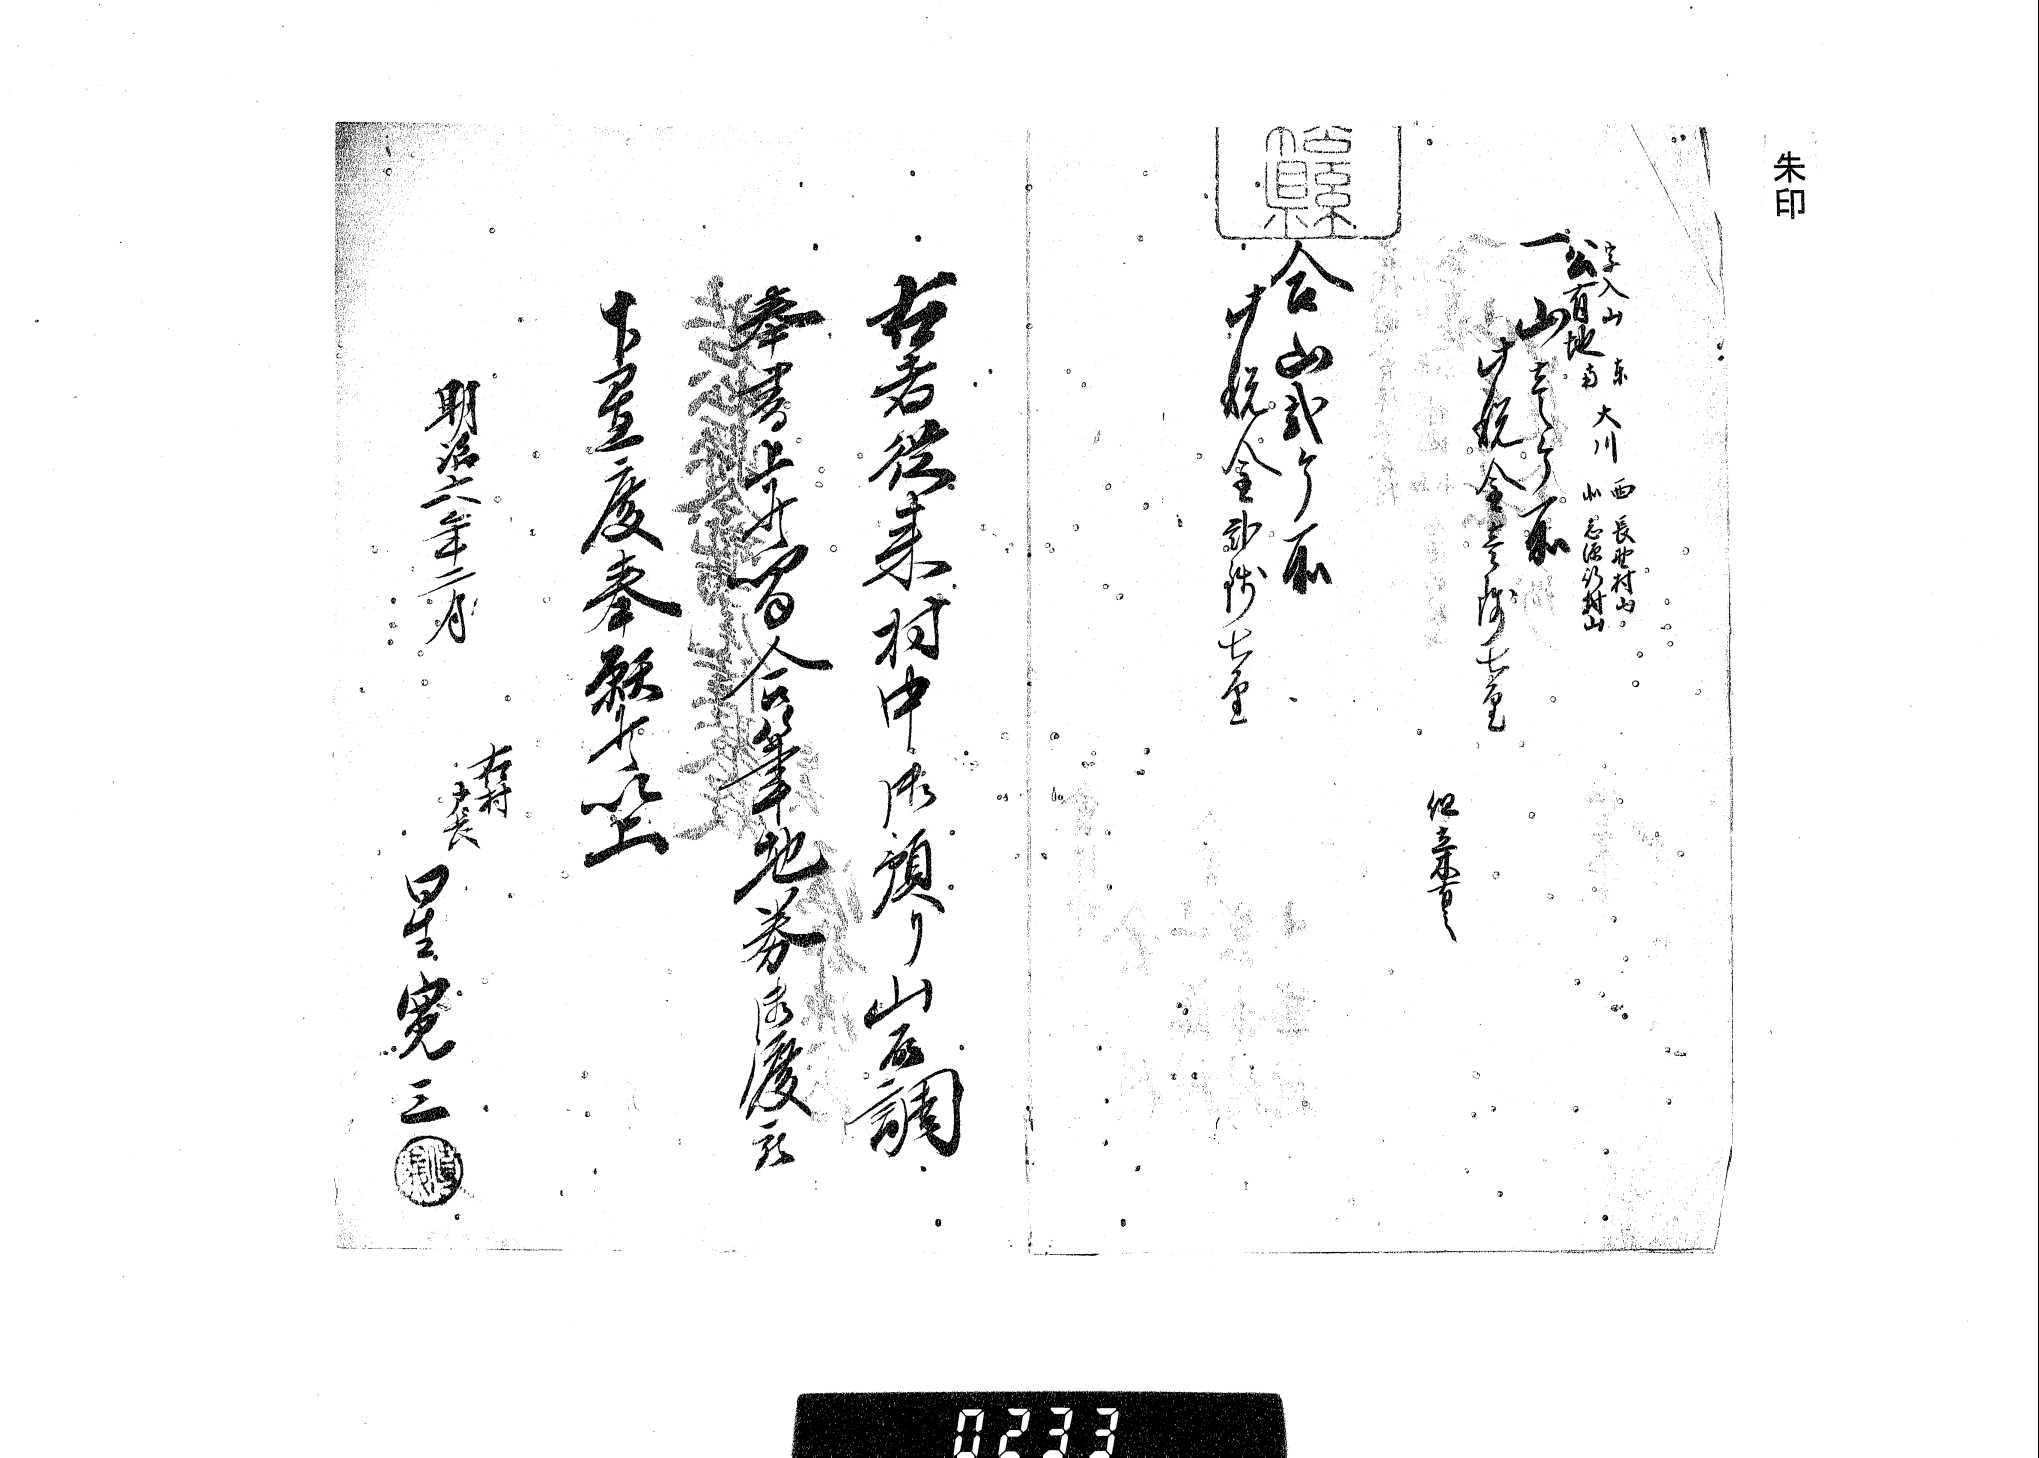 朱印
字入山 東 大川 西 長野村山
南 北 志源行村山
公有地
一 山壱ヶ所
此税金壱銭七厘
但立木有之
合山弐ヶ所
此税金弐銭七厘
縣
右者従来村中御預り山取調
奉書上候間合筆地券御渡被
下置度奉願候以上
明治六年二月
右村
戸長
日生寛三
0233